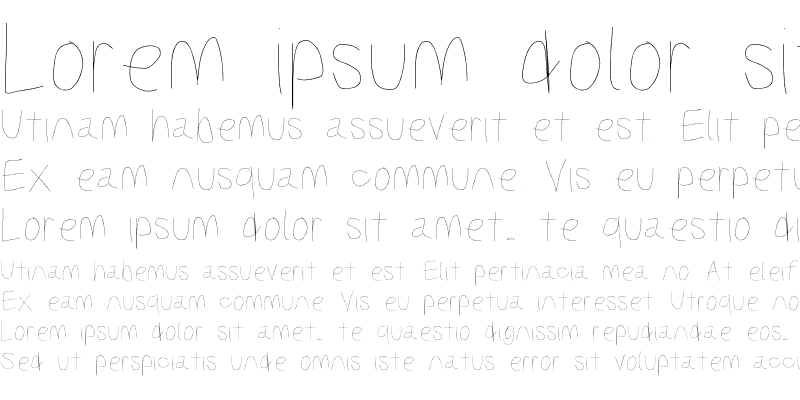 Lorem ipsum dolor sit
Utinam habemus assueverit et est. Elit pe
Ex eam nusquam commune. Vis eu perpetu
Lorem ipsum dolor sit amet.. te quaestio di
Utinam habemus assueverit et est. Elit pertinacia mea no. At eleif
Ex eam nusquam commune. Vis eu perpetua interesset. Utroque no
Lorem ipsum dolor sit amet.. te quaestio dignissim repudiandae eos..
Sed ut perspiciatis unde omnis iste natus error sit voluptatem accu